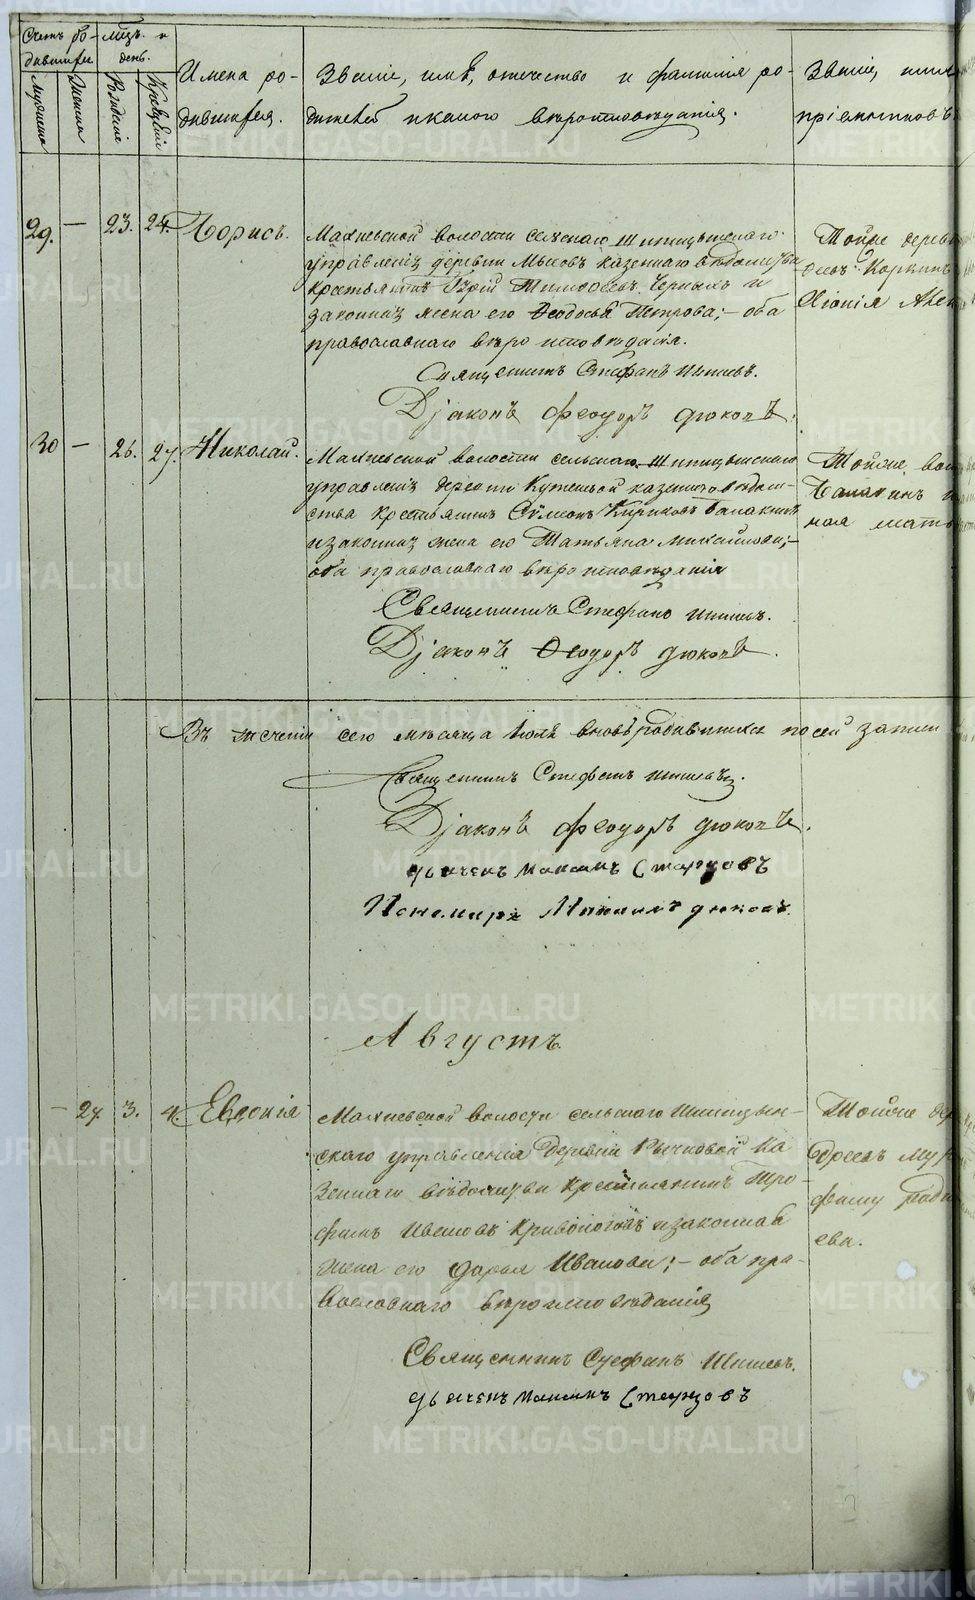 Счетъ ро-
дившихся
Мужеска
Женска
Мѣсяцъ и
день.
Рожденія
Крещенія
Имена ро-
дившихся.
Званіе, имя, отечество и фамилія ро-
дителей и какого вѣроисповѣданія.
Званіе, имя
пріемниковъ
29. — 23. 24. Борисъ.
Махневской волости сельскаго
управленія деревни Мысовъ казеннаго вѣдомства
крестьянинъ Тимоѳеевъ Черныхъ и
законная жена его Ѳеодосья Петрова; — оба
православнаго вѣроисповѣданія.
Священникъ Стефанъ
Дьяконъ Феодоръ Дюковъ.
Тойже дерев
Коркинъ
Хіонія
30 — 26. 27. Николай.
Махневской волости сельскаго
управленія деревни казеннаго вѣдом-
ства крестьянинъ Сѵмеонъ Кириковъ Балакинъ
и законная жена его Татьяна Михайлова; —
оба православнаго вѣроисповѣданія
Священникъ Стефанъ
Дьяконъ Ѳеодоръ Дюковъ.
Тойже вол
Балакинъ
ная мать
Въ теченіи сего мѣсяца Іюля вновь родившихся по сей записи
Священникъ Стефанъ
Дьяконъ Феодоръ Дюковъ.
Дьячекъ Максимъ Старцовъ
Пономарь Дюковъ.
Августъ
— 27. 3. 4. Евдокія
Махневской волости сельскаго
скаго управленія деревни Кычковой ка
зеннаго вѣдомства крестьянинъ Тро-
фимъ Ивановъ Кривоноговъ и законная
жена его Дарья Иванова; — оба пра-
вославнаго вѣроисповѣданія
Священникъ Стефанъ
Дьячекъ Максимъ Старцовъ
Тойже дер
ева.
METRIKI.GASO-URAL.RU